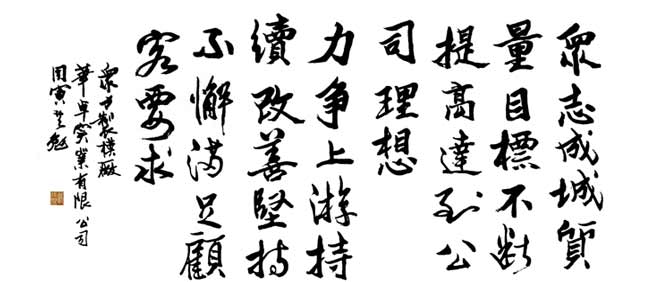 眾志成城質
量目標不斷
提高達到公
司理想
力争上游持
續改善堅持
不懈滿足顧
客要求
製模廠
華卓實業有限公司